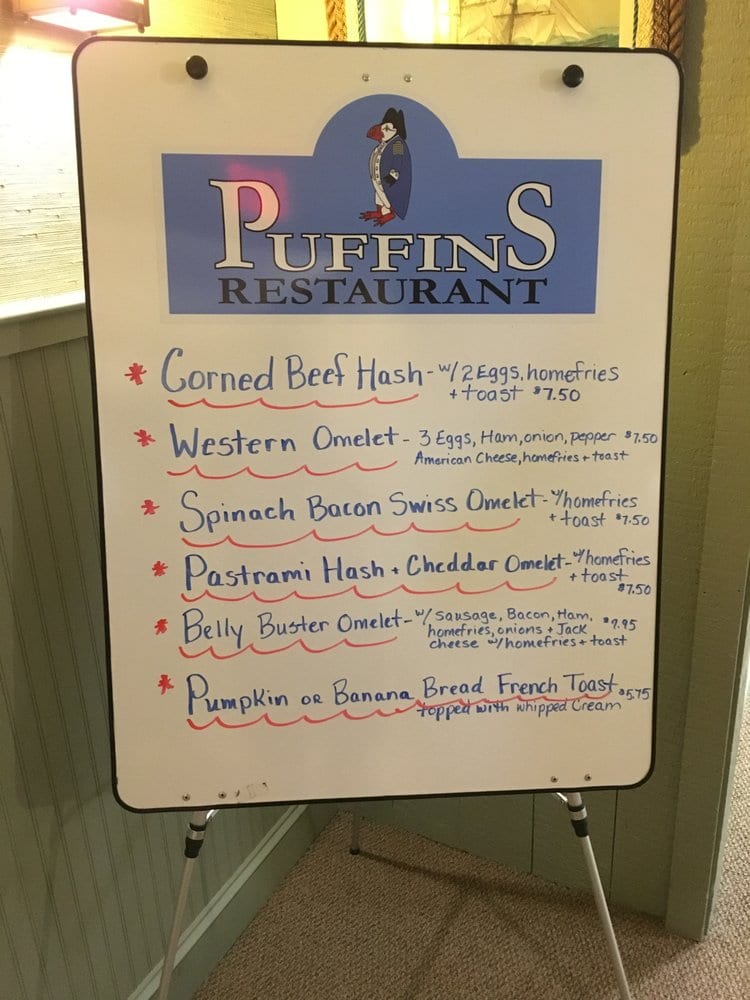 PUFFINS
RESTAURANT
* Corned Beef Hash - w/ 2 Eggs, homefries
+ toast $7.50
* Western Omelet - 3 Eggs, Ham, onion, pepper $7.50
American Cheese, homefries + toast
* Spinach Bacon Swiss Omelet - w/ homefries
+ toast $7.50
* Pastrami Hash + Cheddar Omelet - w/ homefries
+ toast
$7.50
* Belly Buster Omelet - w/ Sausage, Bacon, Ham, $9.95
homefries, onions + Jack
cheese w/ homefries + toast
* Pumpkin or Banana Bread French Toast $5.75
topped with whipped Cream